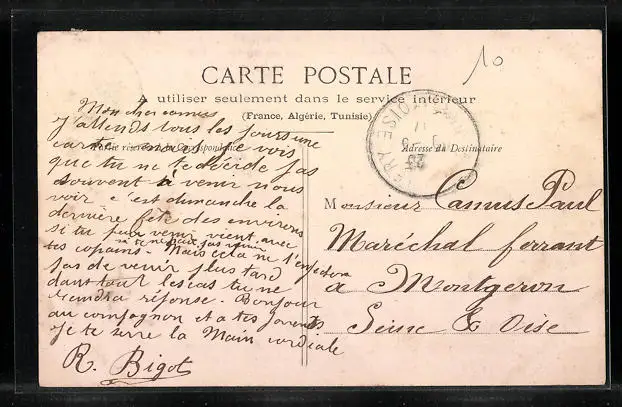 10
CARTE POSTALE
A utiliser seulement dans le service intérieur
(France, Algérie, Tunisie)
Partie réservée à la Correspondance
Adresse du Destinataire
Mon cher camus
J'attends tous les jours une
carte mais je vois
que tu ne te décide pas
souvent à venir nous
voir c'est dimanche la
dernière fête des environs
si tu peux venir vient avec
tes copains - Mais cela ne t'empechera
pas de venir plus tard
dans tout les cas tu me
rendra réponse - Bonjour
au compagnon et a tes parents
Je te serre la Main cordiale
R. Bigot
Monsieur Camus Paul
Maréchal ferrant
à Montgeron
Seine & Oise